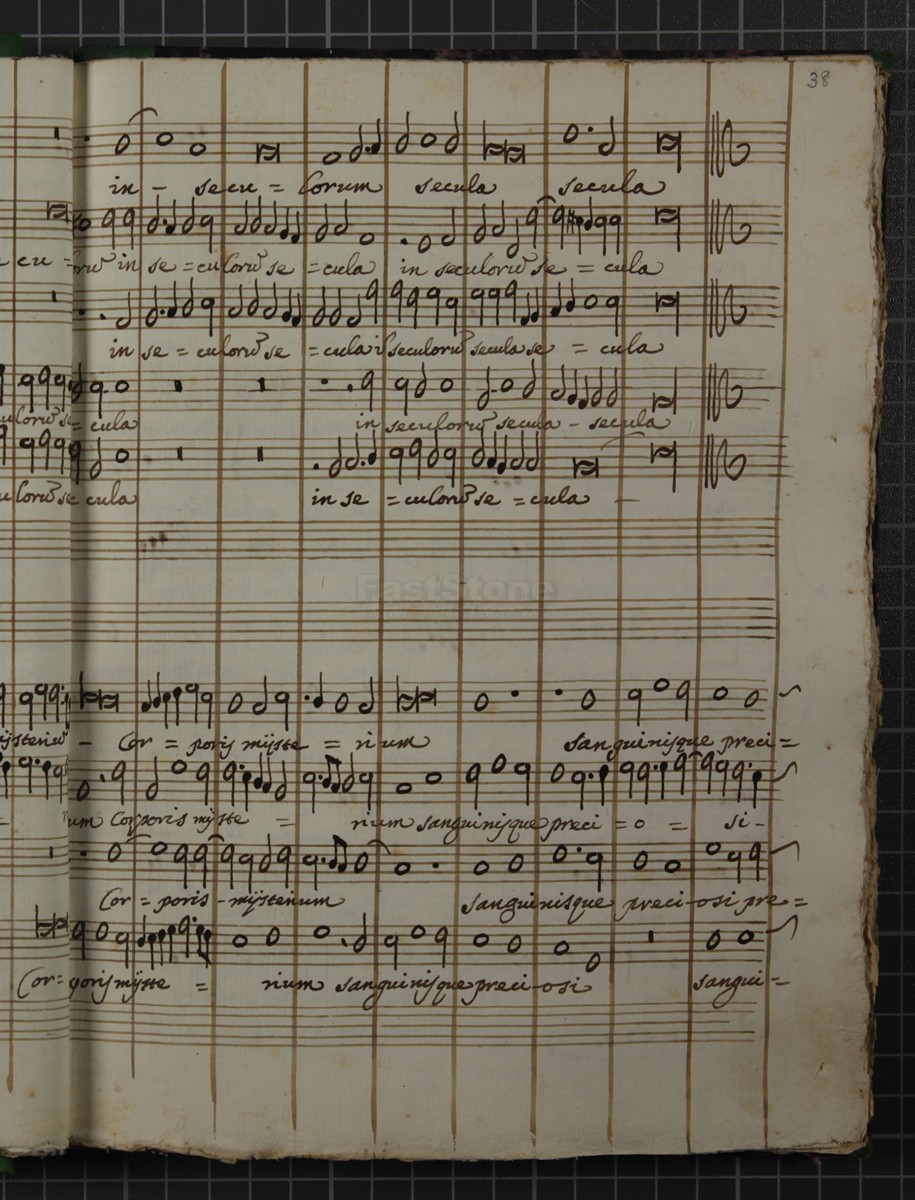 38
in - secu = lorum secula secula
cu = rū in se = culorū se = cula in seculorū se = cula
in se = culorū se = cula ī seculorū secula se = cula
ulorū se = cula in seculorū secula - secula
ulorū se cula in se = culorū se = cula
FastStone
ijsteriū - Cor = poris mijste = rium sanguinisque preci =
= rum Corporis mijste = rium sanguinisque preci = o = si -
Cor = poris - mijsterium sanguinisque preci-osi pre =
Cor = poris mijste = rium sanguinisque preci-osi sangui =